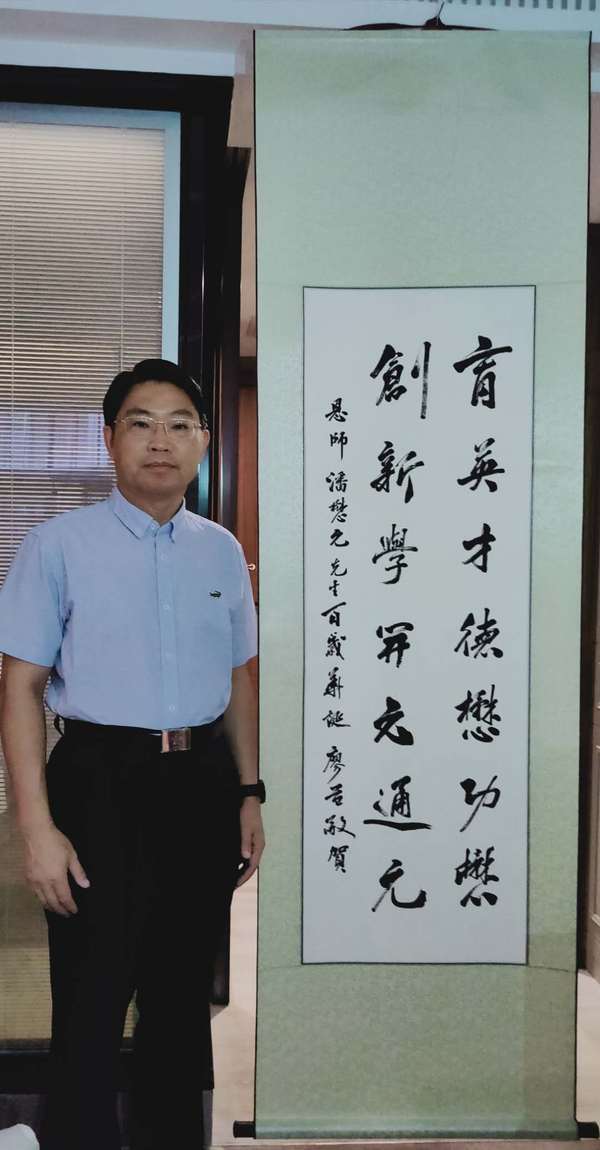 育英才德懋功懋
創新學開元通元
恩師潘懋元先生百歲華誕廖苔敬賀